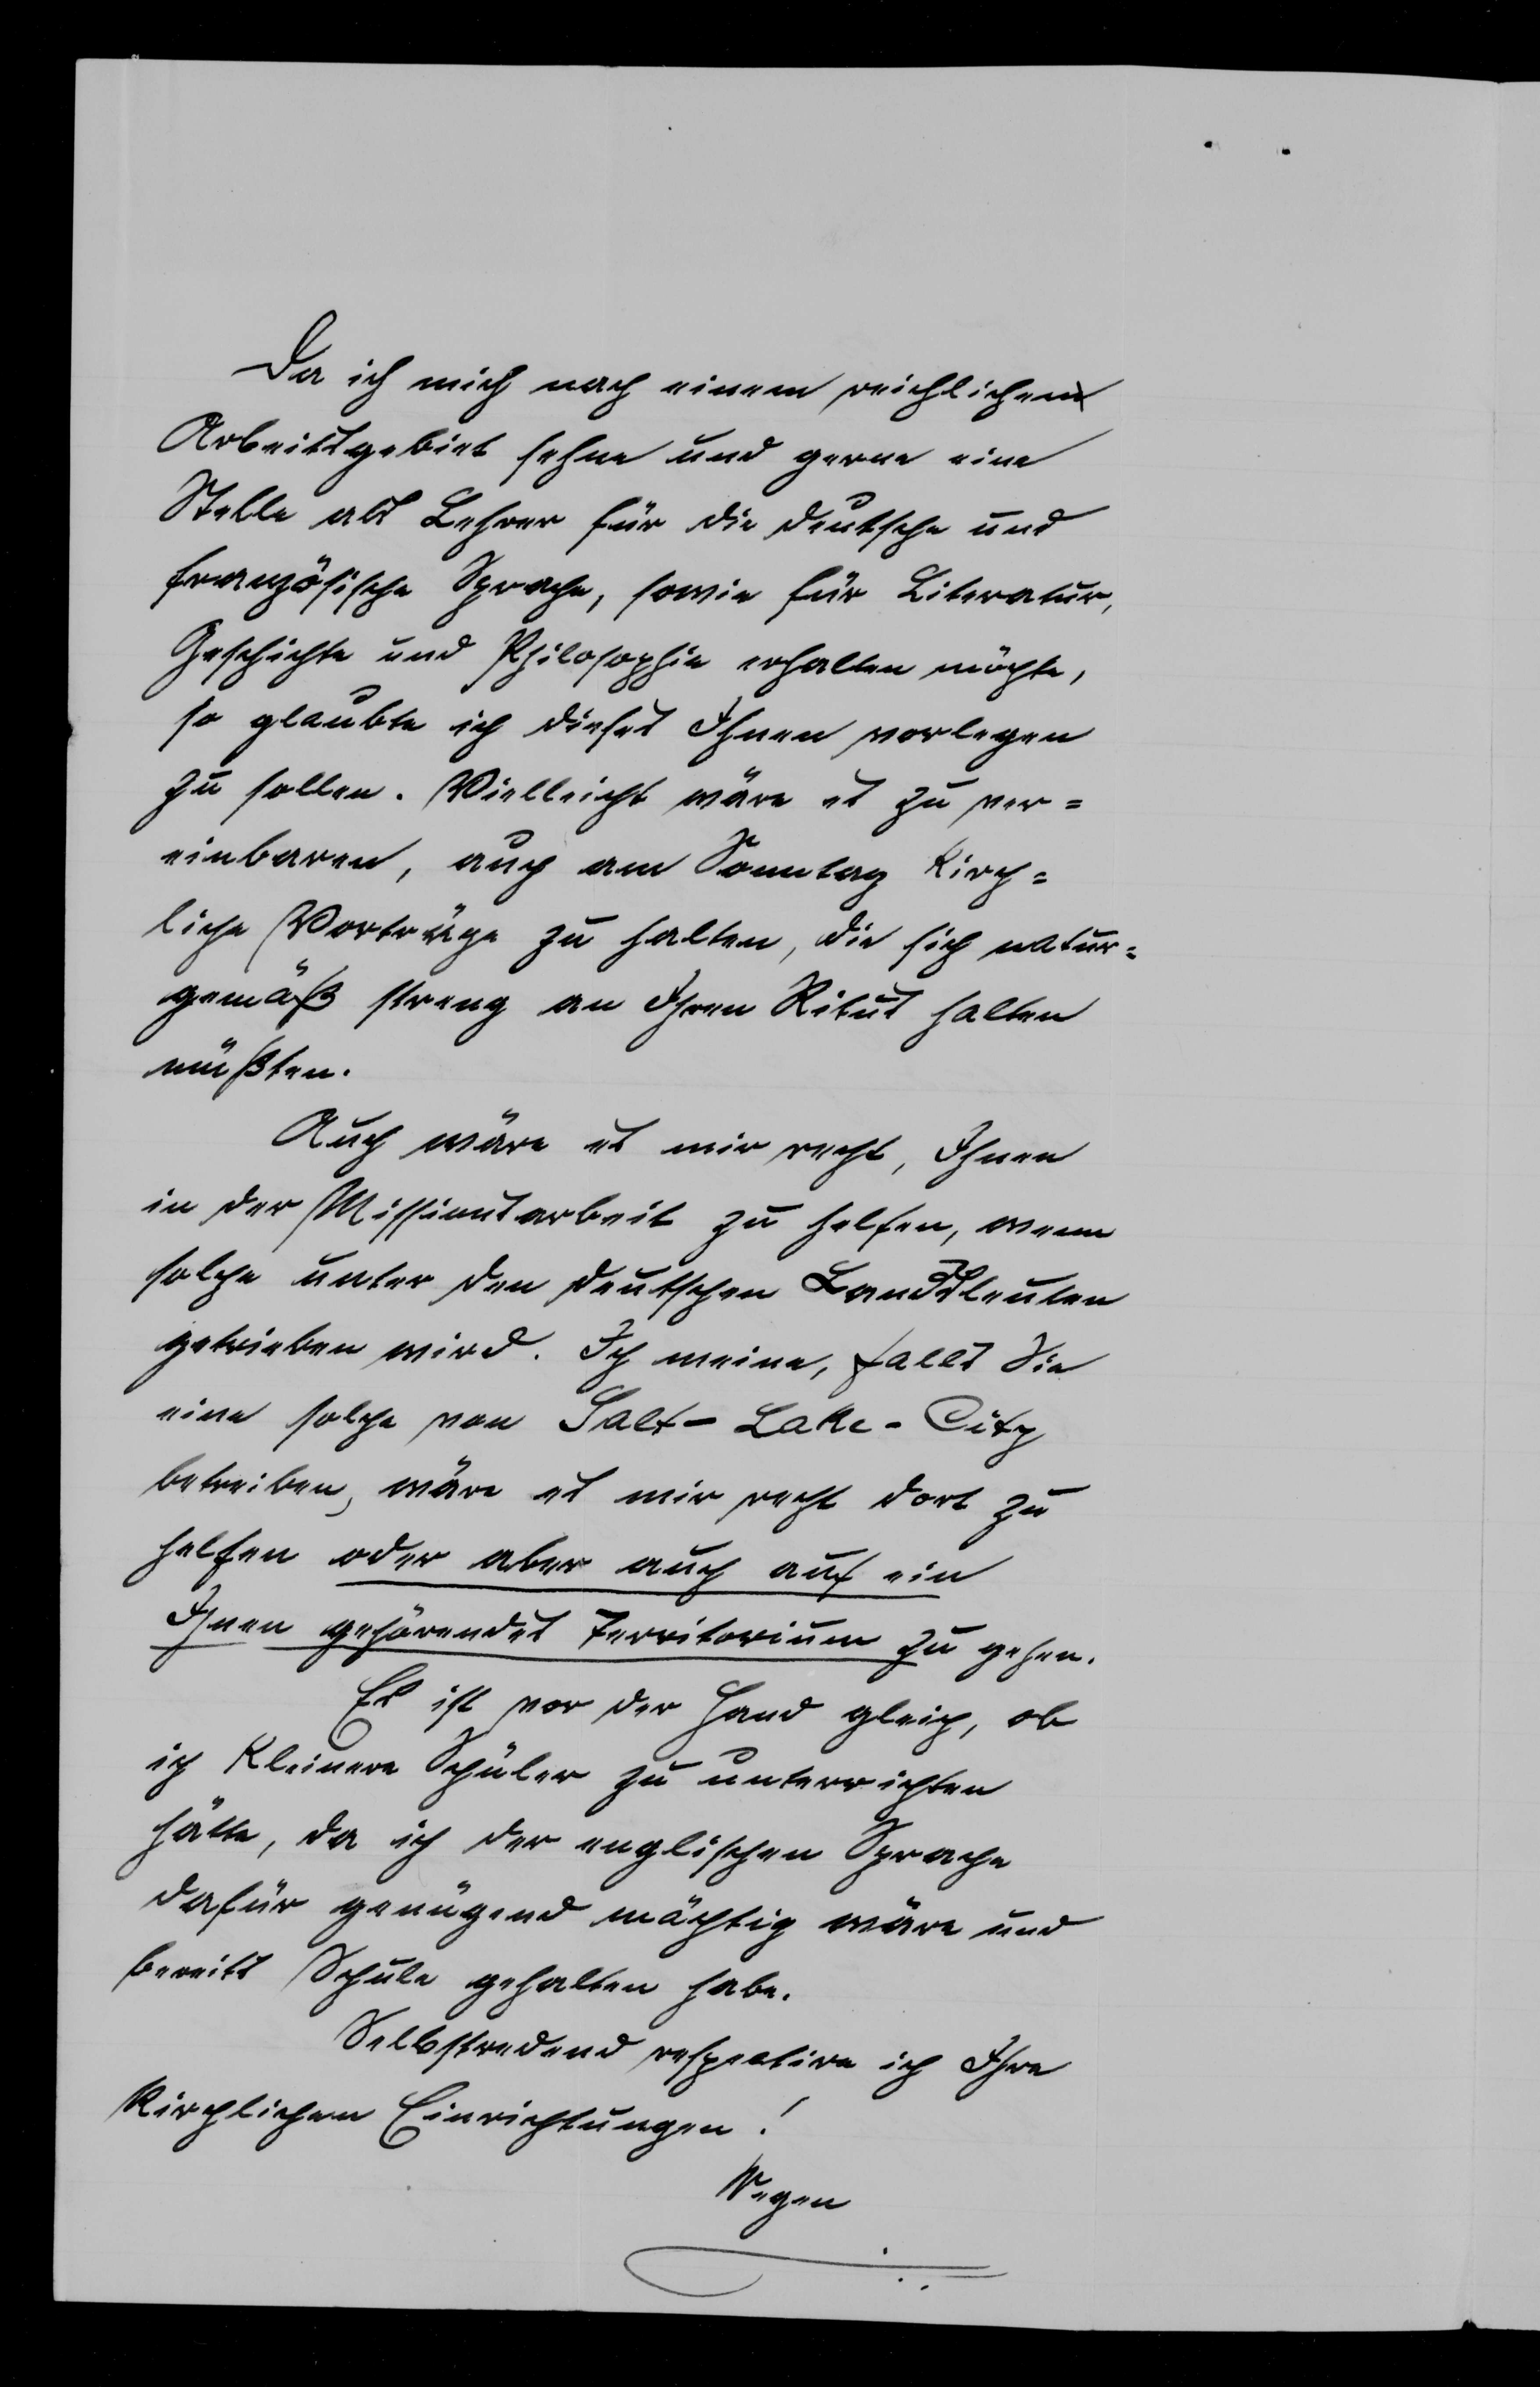 Da ich mich nach einem reichlichen
Arbeitsgebiet sehne und gerne eine
Stelle als Lehrer für die deutsche und
französische Sprache, sowie für Literatur,
Geschichte und Philosophie erhalten möchte,
so glaubte ich dieses Ihnen vorlegen
zu sollen. Vielleicht wäre es zu ver=
einbaren, auch am Sonntag kirch=
liche Vorträge zu halten, die sich natur=
gemäß streng an Ihren Ritus halten
müßten.
Auch wäre es mir recht, Ihnen
in der Missionsarbeit zu helfen, wenn
solche unter den deutschen Landsleuten
getrieben wird. Ich meine, falls Sie
eine solche von Salt-Lake-City
betreiben, wäre es mir recht dort zu
helfen oder aber auch auf ein
Ihnen gehörendes Territorium zu gehen.
Es ist vor der Hand gleich, ob
ich kleinere Schüler zu unterrichten
hätte, da ich der englischen Sprache
dafür genügend mächtig wäre und
bereits Schule gehalten habe.
Selbstredend respectire ich Ihre
kirchlichen Einrichtungen!
Wegen